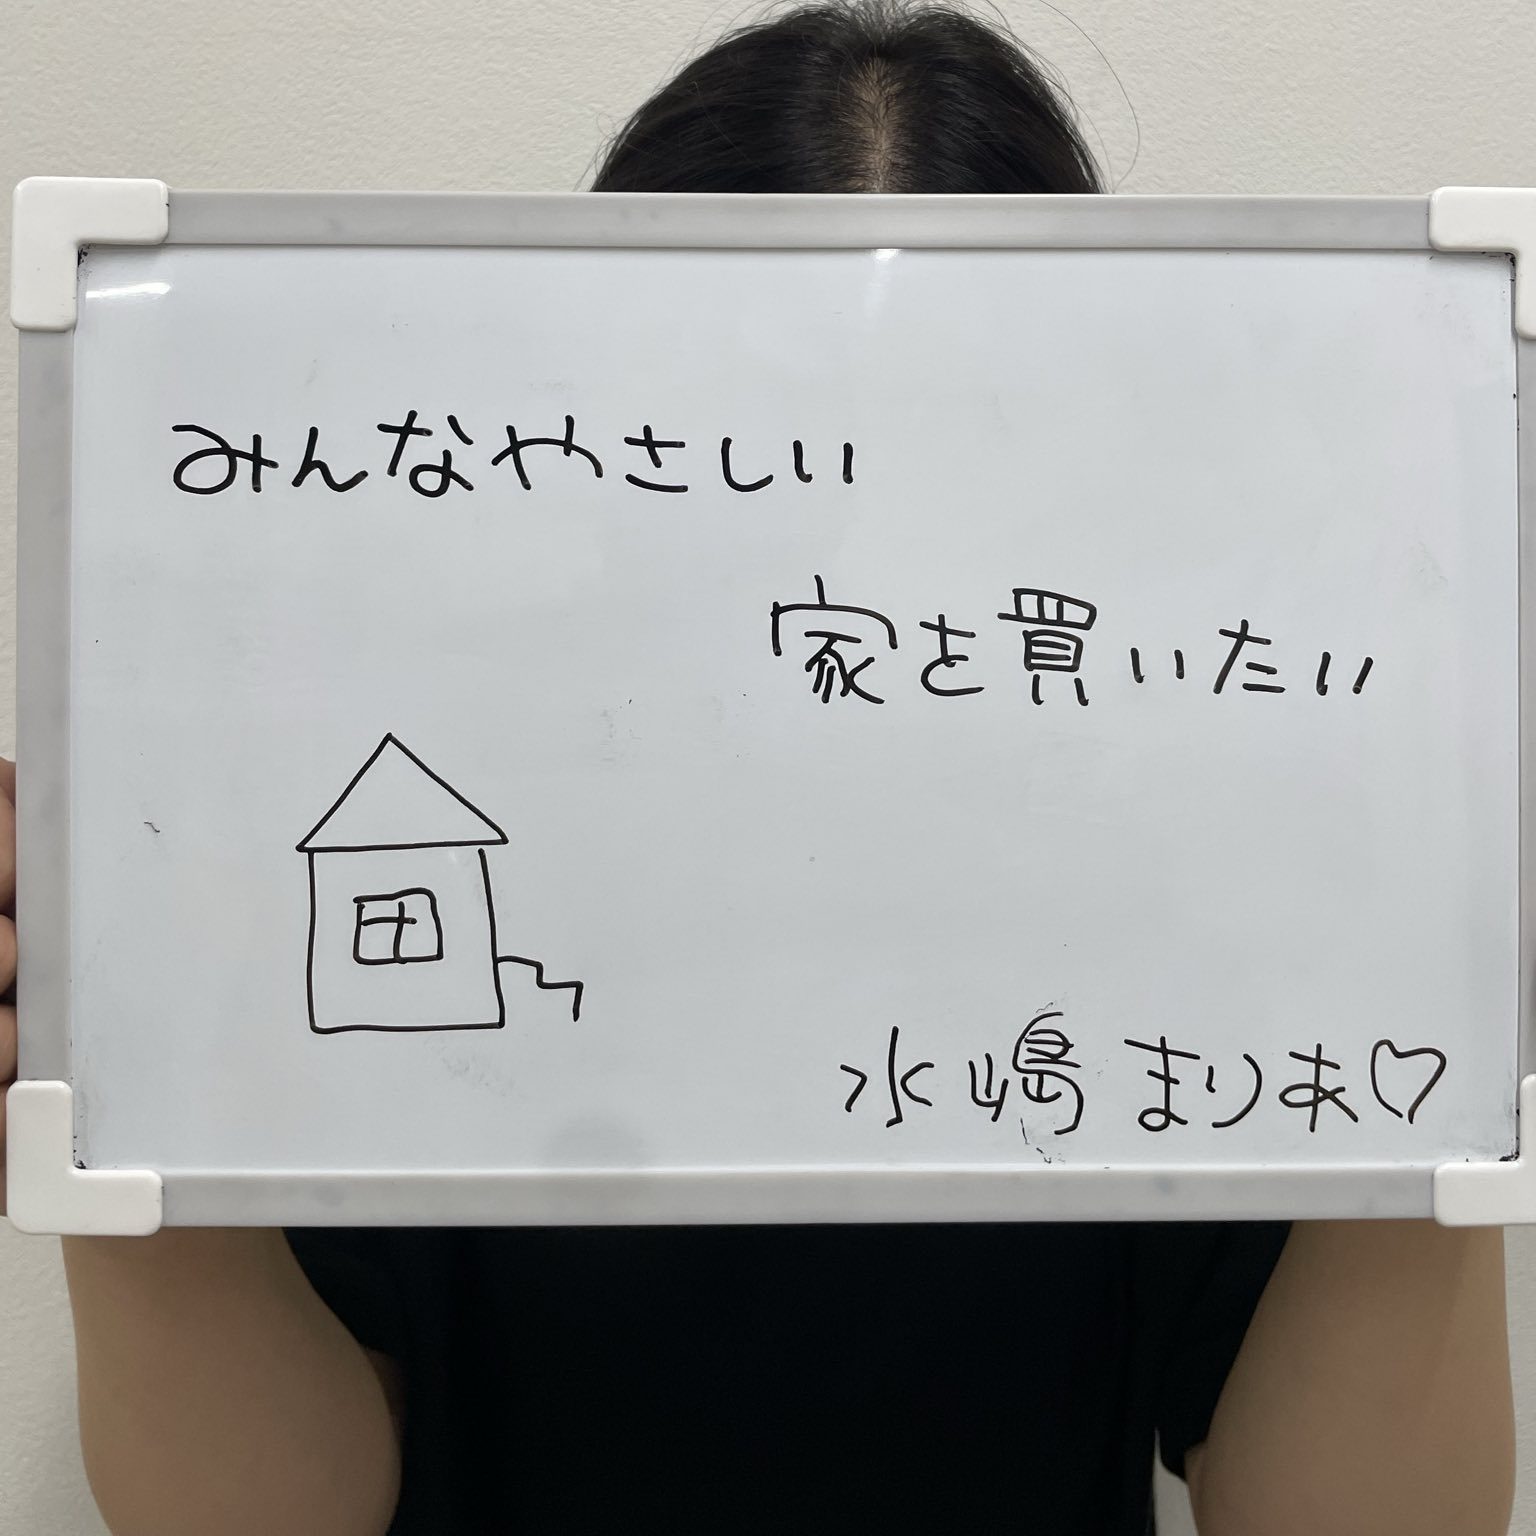 みんなやさしい
家を買いたい
水嶋まりあ♡